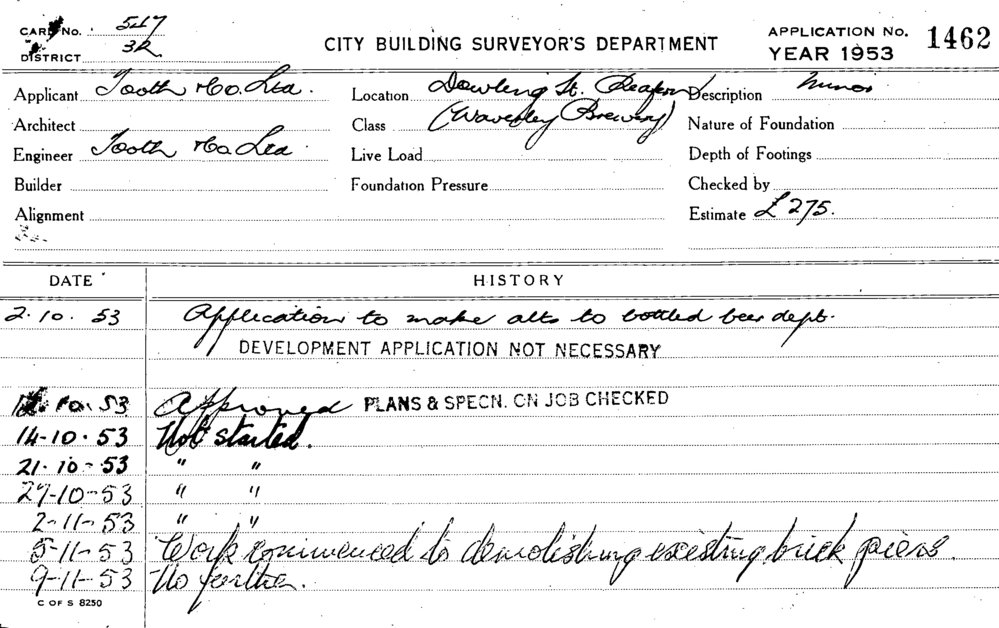 CARD No. 547
DISTRICT 3R
CITY BUILDING SURVEYOR'S DEPARTMENT
APPLICATION No. 1462
YEAR 1953
Applicant Tooth & Co. Ltd. Location Dowling St. Redfern Description Minor
Architect Class (Waverley Brewery) Nature of Foundation
Engineer Tooth & Co. Ltd. Live Load Depth of Footings
Builder Foundation Pressure Checked by
Alignment Estimate £275.
DATE HISTORY
2.10.53 Application to make alts to bottled beer dept.
DEVELOPMENT APPLICATION NOT NECESSARY
10.53 Approved PLANS & SPECN. ON JOB CHECKED
14-10.53 Not started.
21.10-53 " "
27-10-53 " "
2-11-53 " "
5-11-53 Work commenced to demolishing existing brick piers.
9-11-53 No further.
C OF S 8250